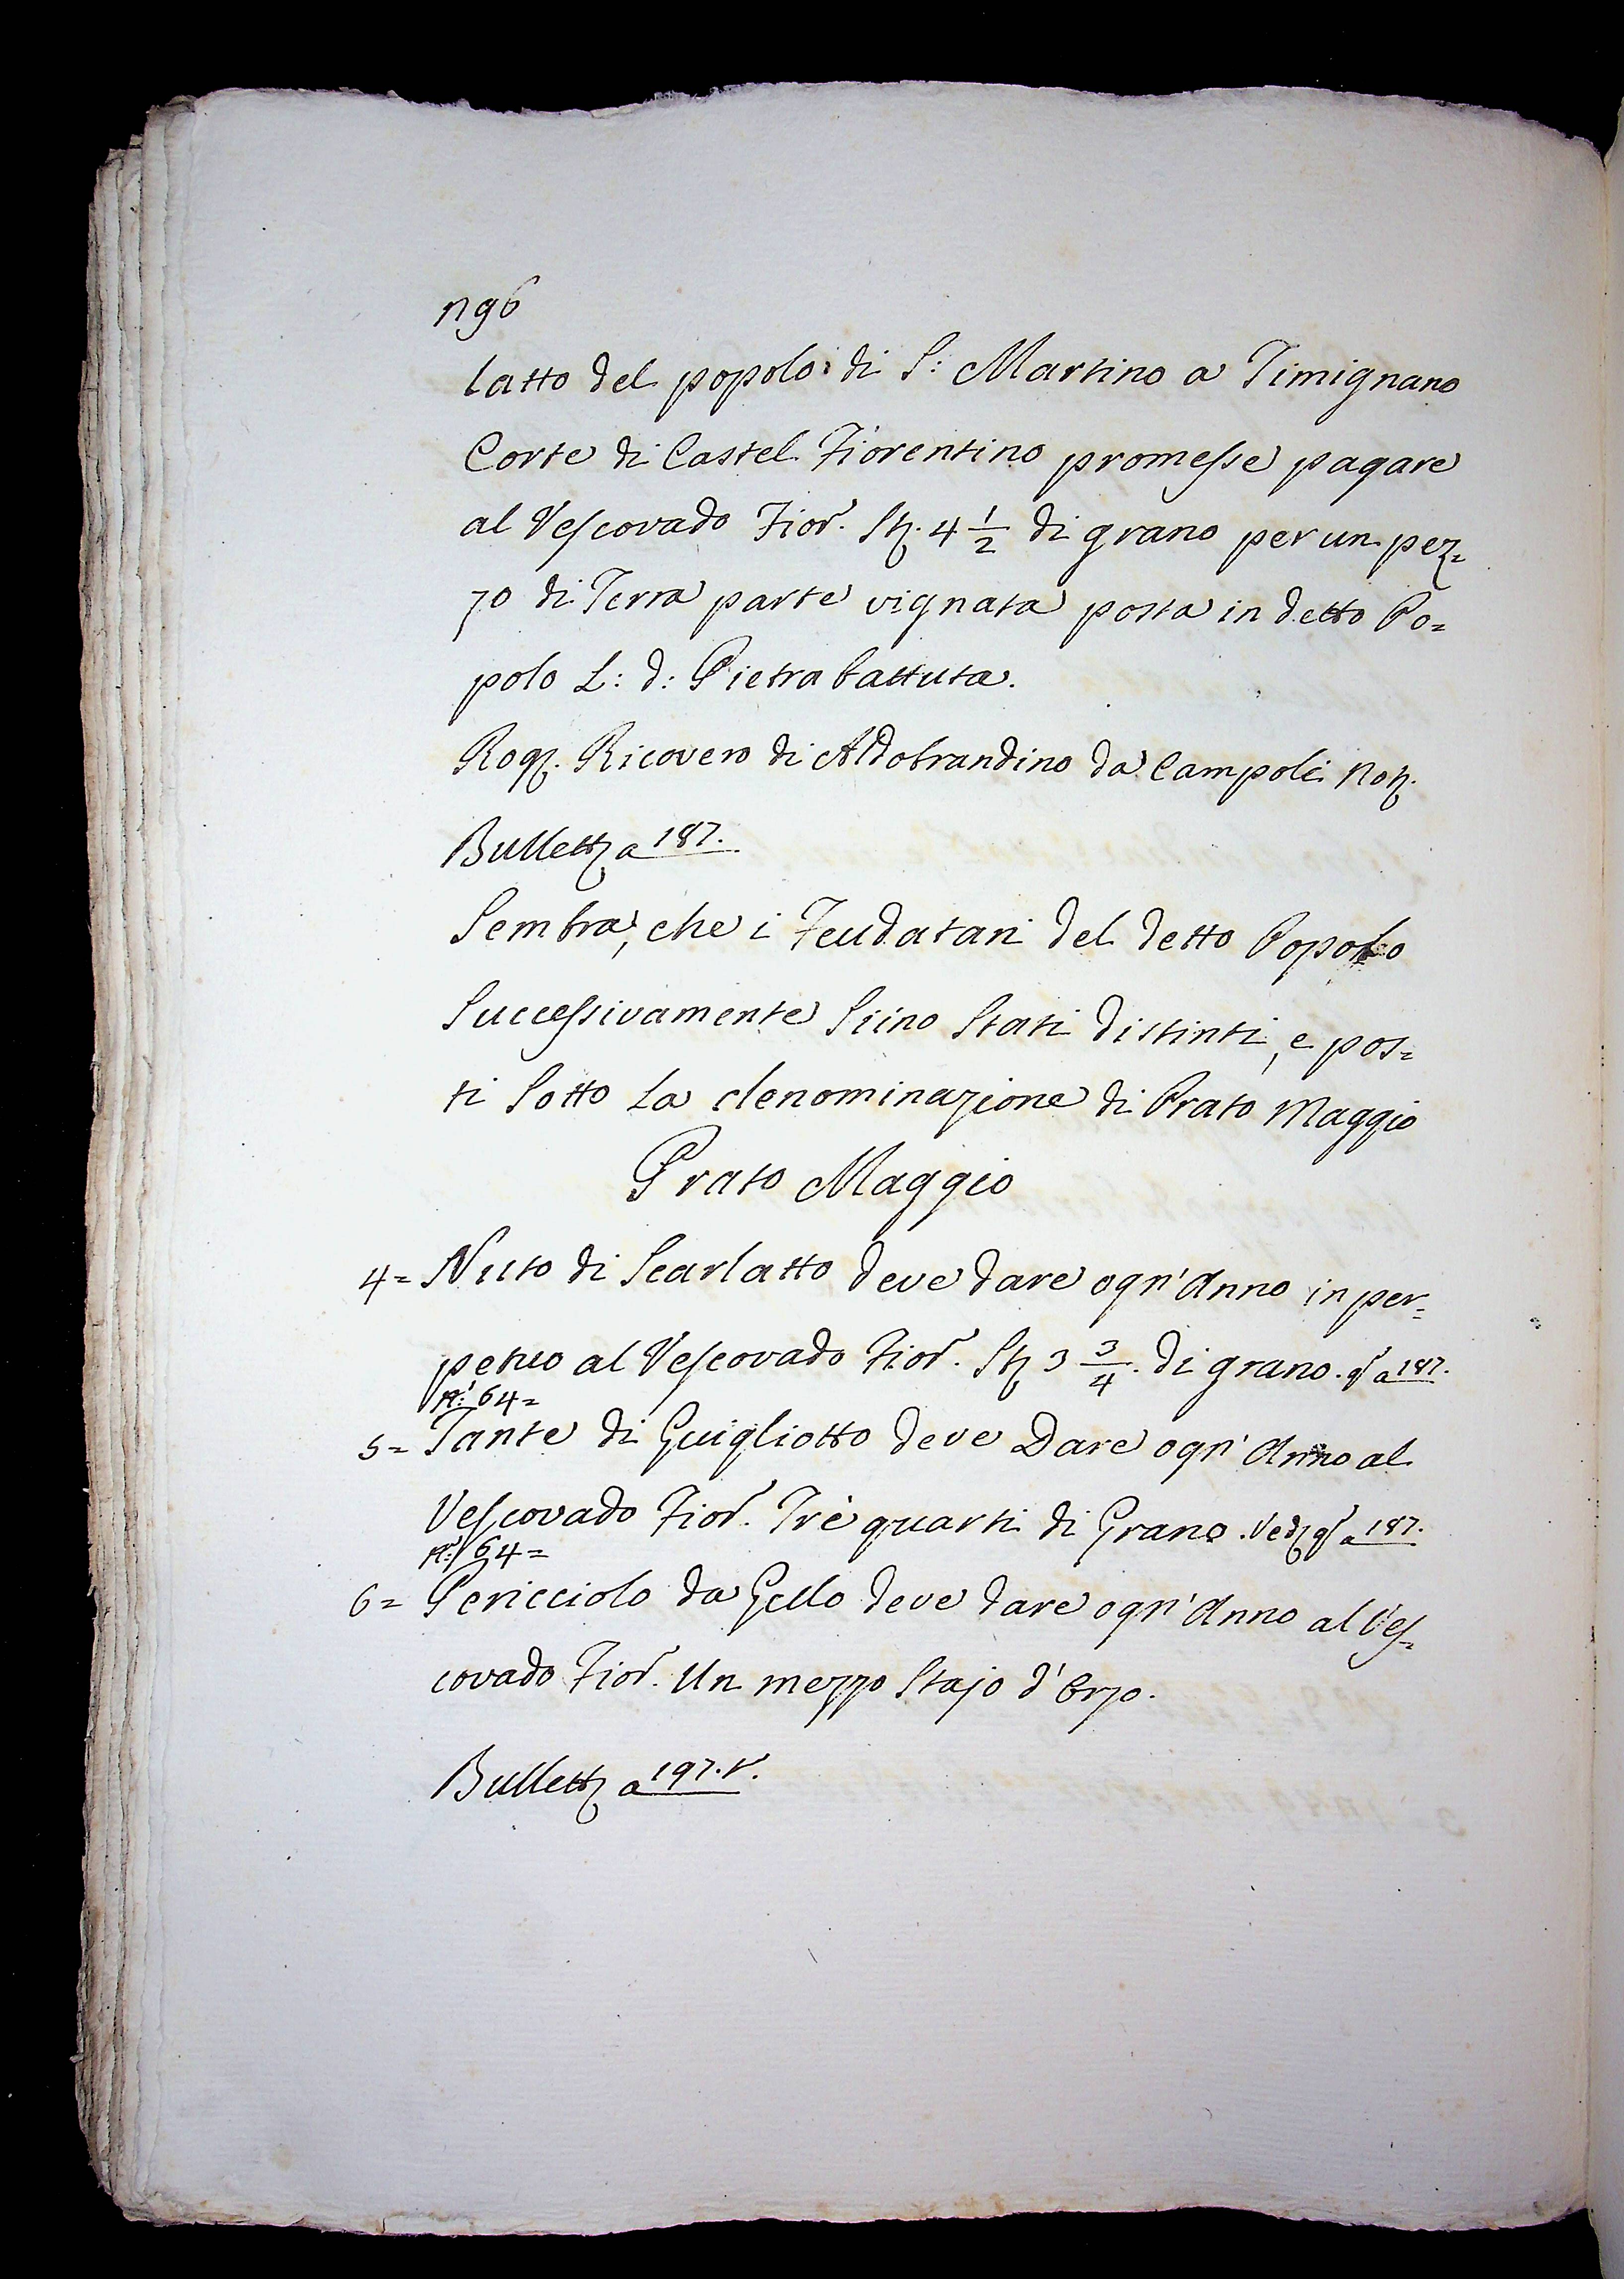 1196
latto del popolo di S: Martino a Timignano
Corte di Castel Fiorentino promesse pagare
al Vescovado Fior. Stz. 4 1/2 di grano per un pez=
zo di Terra parte vignata posta in detto Po=
polo L: d: Pietra battuta.
Rogz. Ricovero di Aldobrandino da Campoli Notz.
Bullettz a 187.
Sembra, che i Feudatari del detto Popolo
Successivamente Siino Stati distinti, e pos=
ti Sotto la denominazione di Prato Maggio
Prato Maggio
4= Nuto di Scarlatto deve dare ogn'Anno in per=
petuo al Vescovado Fior. Stz 3 3/4. di grano. a 187.
N: 64=
5= Tante di Guigliotto deve Dare ogn'Anno al
Vescovado Fior. Trè quarti di Grano. Vedz a 187.
N: 64=
6= Pericciolo da Gello deve dare ogn'Anno al Ves=
covado Fior. Un mezzo Stajo d'Orzo.
Bullettz a 197.v.